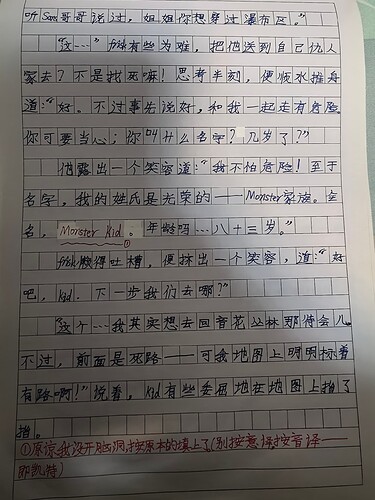 听Sans哥哥说过，姐姐你想穿过瀑布区。”
“这…”frisk有些为难，把他送到自己仇人
家去？不是找死嘛！思考半刻，便顺水推舟
道：“好。不过事先说好，和我一起走有危险
你可要当心；你叫什么名字？几岁了？”
他露出一个笑容道：“我不怕危险！至于
名字，我的姓氏是光荣的——Monster家族。全
名，Monster Kid。年龄吗…八十三岁。”①
frisk懒得吐槽，便挤出一个笑容，道：“好
吧，kid.下一步我们去哪？”
“这个…我其实想去回音花丛林那待会儿。
不过，前面是死路——可我地图上明明标着
有路啊！”说着，kid有些委屈地在地图上指了
指。
①原谅我没开脑洞，按原本的填上了（别按意译按音译——
即凯特）